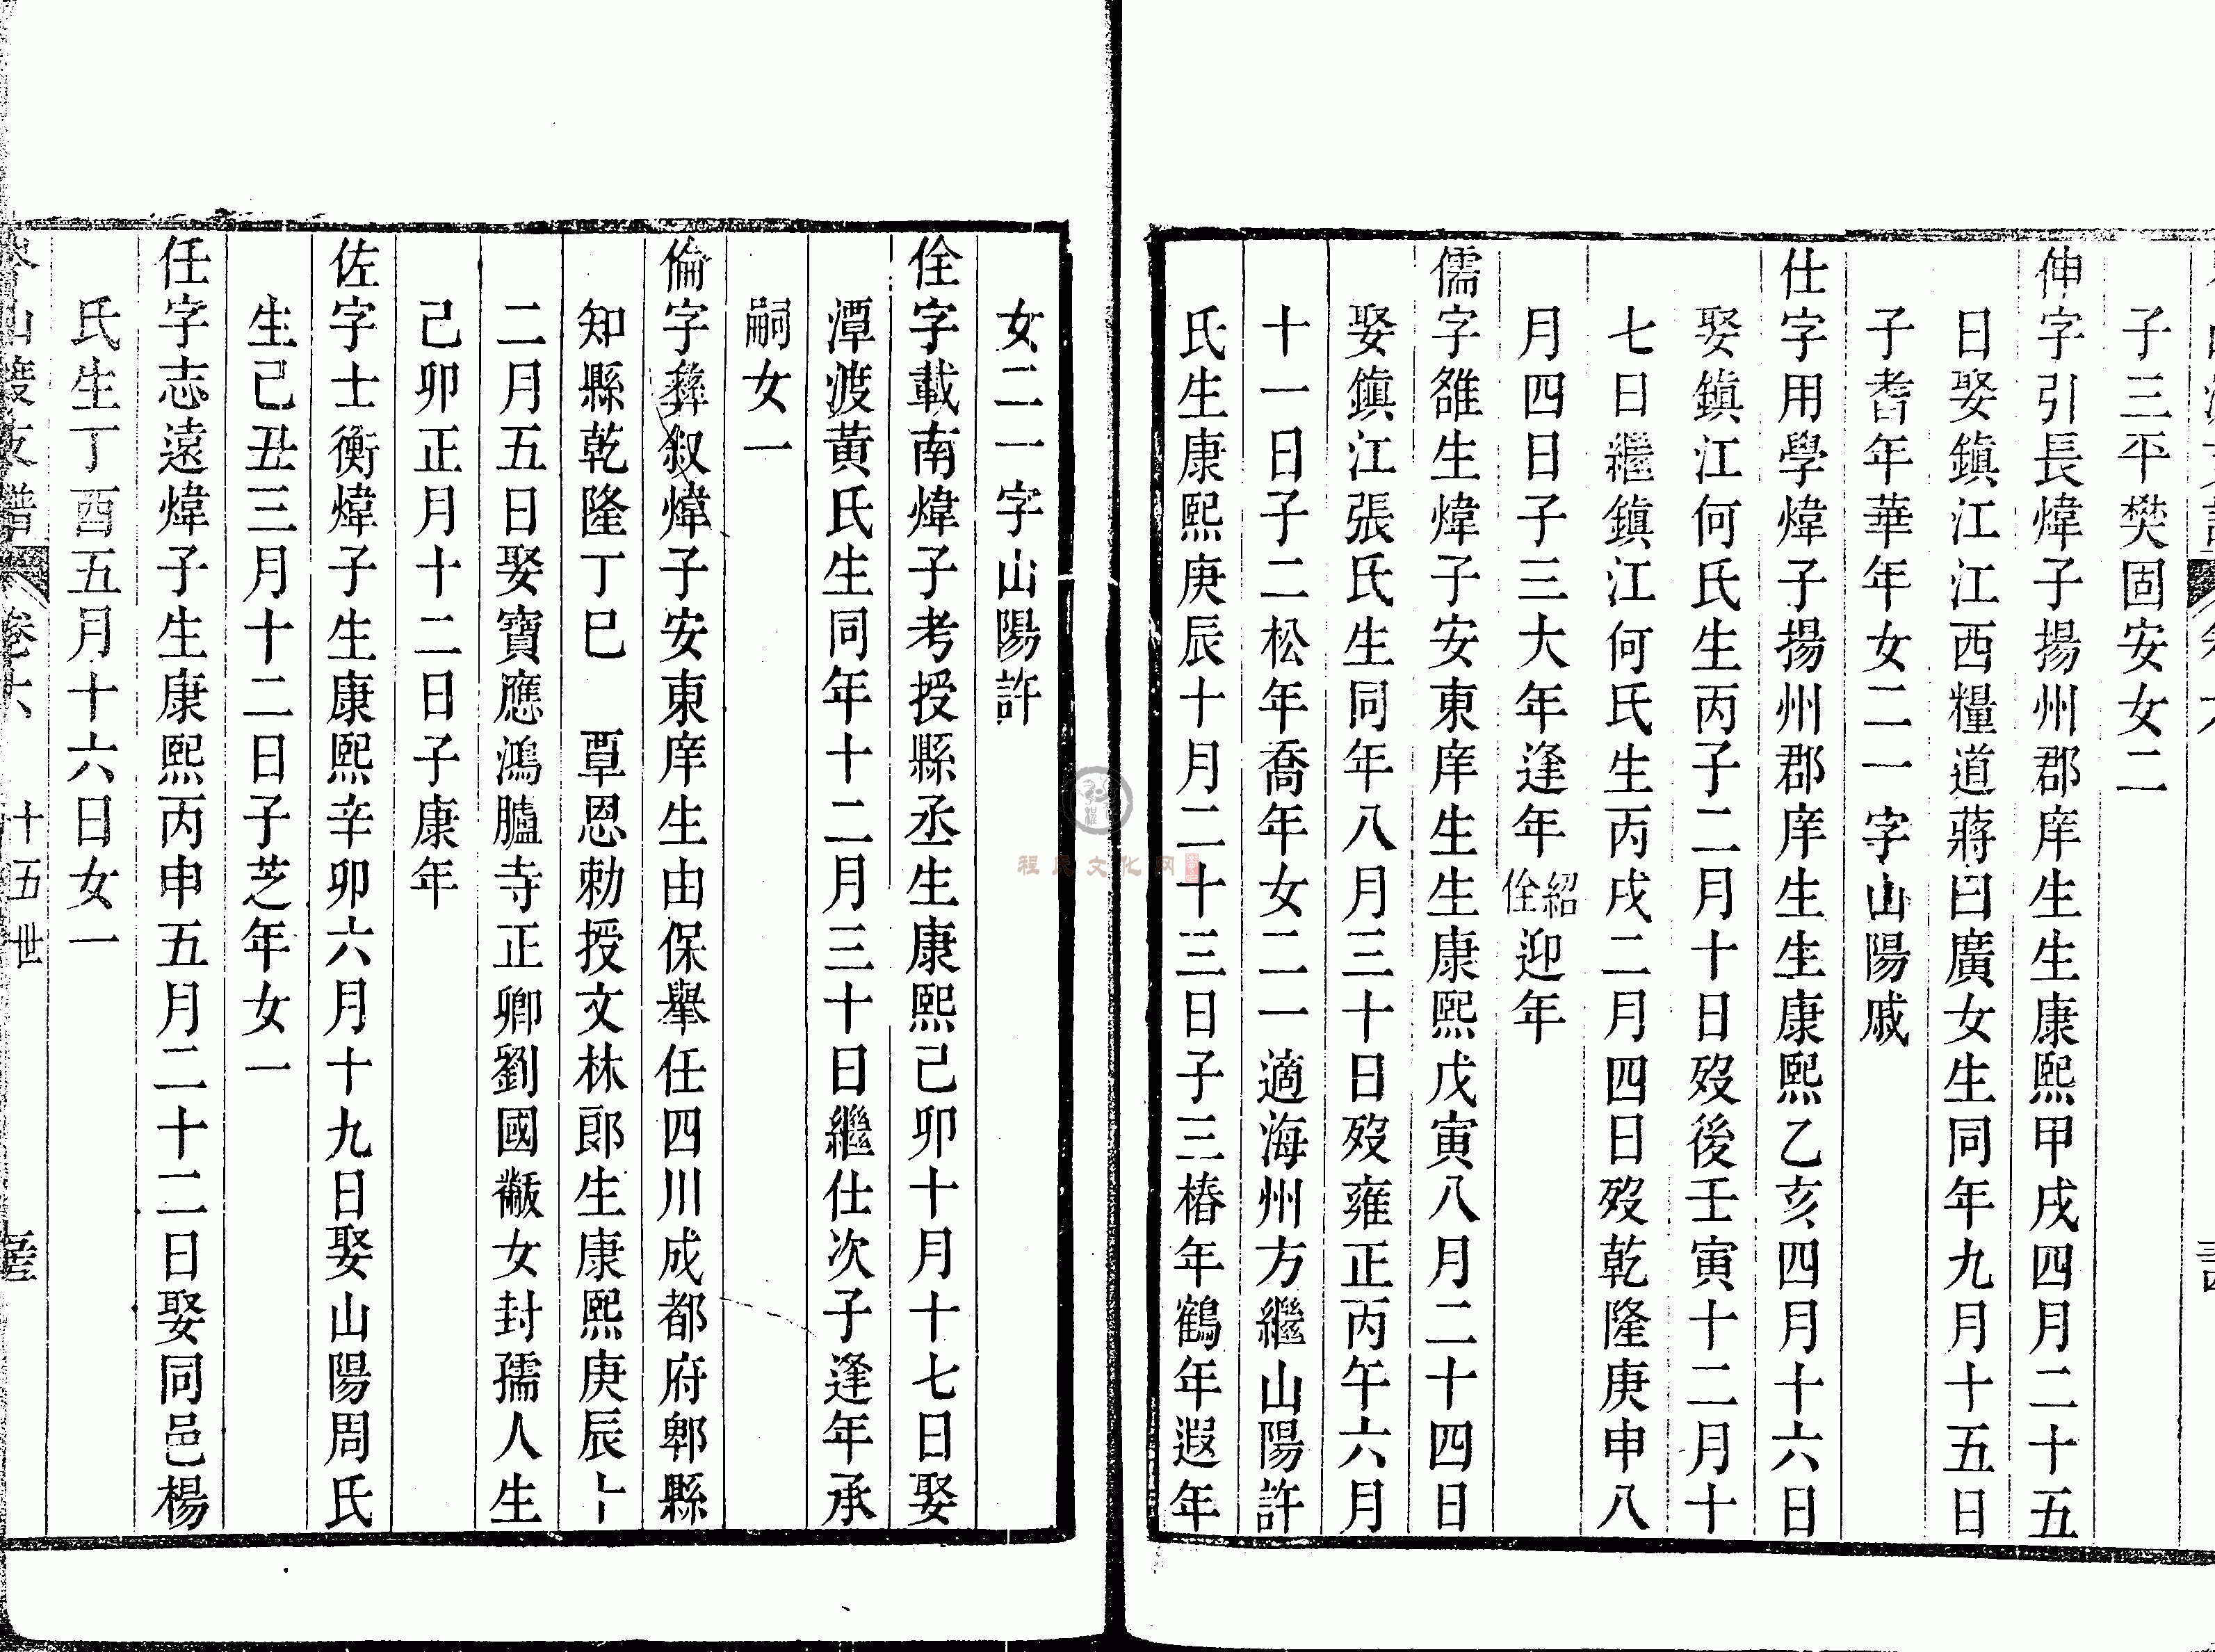 子三平樊固安女二
伸字引長煒子揚州郡庠生生康熙甲戌四月二十五
日娶鎮江江西糧道蔣曰廣女生同年九月十五日
子耆年華年女二一字山陽戚
仕字用學煒子揚州郡庠生生康熙乙亥四月十六日
娶鎮江何氏生丙子二月十日歿後壬寅十二月十
七日繼鎮江何氏生丙戌二月四日歿乾隆庚申八
月四日子三大年逢年紹佺迎年
儒字雒生煒子安東庠生生康熙戊寅八月二十四日
娶鎮江張氏生同年八月三十日歿雍正丙午六月
十一日子二松年喬年女二一適海州方繼山陽許
氏生康熙庚辰十月二十三日子三椿年鶴年遐年
女二一字山陽許
佺字載南煒子考授縣丞生康熙己卯十月十七日娶
潭渡黃氏生同年十二月三十日繼仕次子逢年承
嗣女一
倫字彝叙煒子安東庠生由保舉任四川成都府郫縣
知縣乾隆丁巳 覃恩勅授文林郎生康熙庚辰十
二月五日娶寶應鴻臚寺正卿劉國黻女封孺人生
己卯正月十二日子康年
佐字士衡煒子生康熙辛卯六月十九日娶山陽周氏
生己丑三月十二日子芝年女一
任字志遠煒子生康熙丙申五月二十二日娶同邑楊
氏生丁酉五月十六日女一
山渡支譜 卷六 十五世
程氏文化网